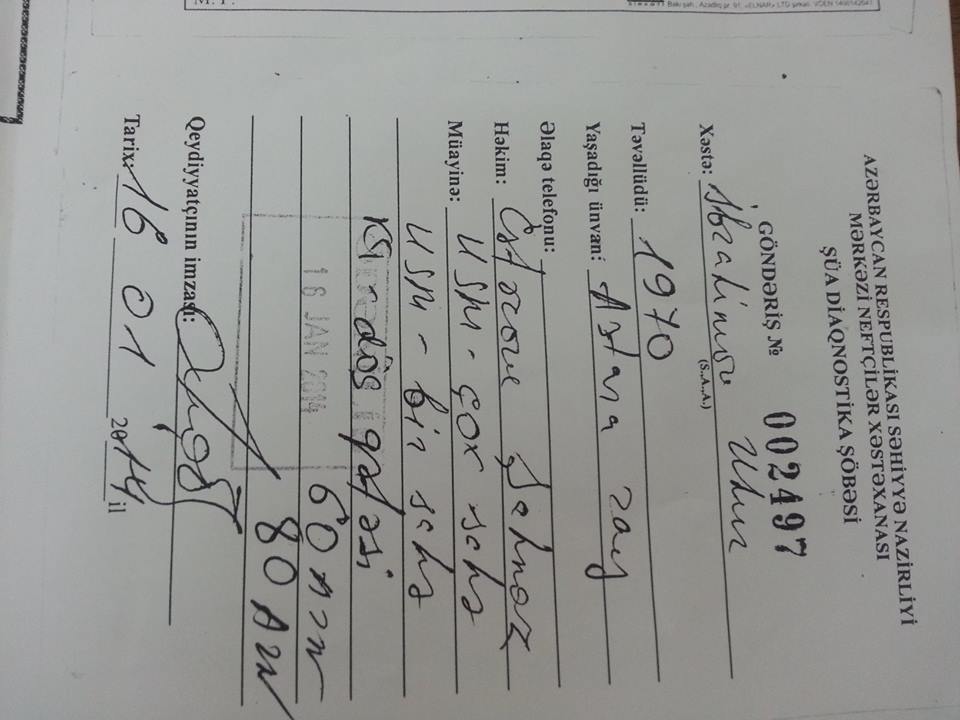 M. Y.
Bakı şəh., Azadlıq pr. 91, «ELNAR» LTD şirkəti. VÖEN
AZƏRBAYCAN RESPUBLİKASI SƏHİYYƏ NAZİRLİYİ
MƏRKƏZİ NEFTÇİLƏR XƏSTƏXANASI
ŞÜA DİAQNOSTİKA ŞÖBƏSİ
GÖNDƏRİŞ № 002497
Xəstə: İbrahimov
(S.A.A.)
Təvəllüdü: 1970
Yaşadığı ünvan: Astara ray
Əlaqə telefonu:
Həkim: Şahnaz
Müayinə: USM - çox sahə
USM - bir sahə
döş qəfəsi
16 JAN 2014
60 man
80 Azn
Qeydiyyatçının imzası:
Tarix: 16 01 2014 il